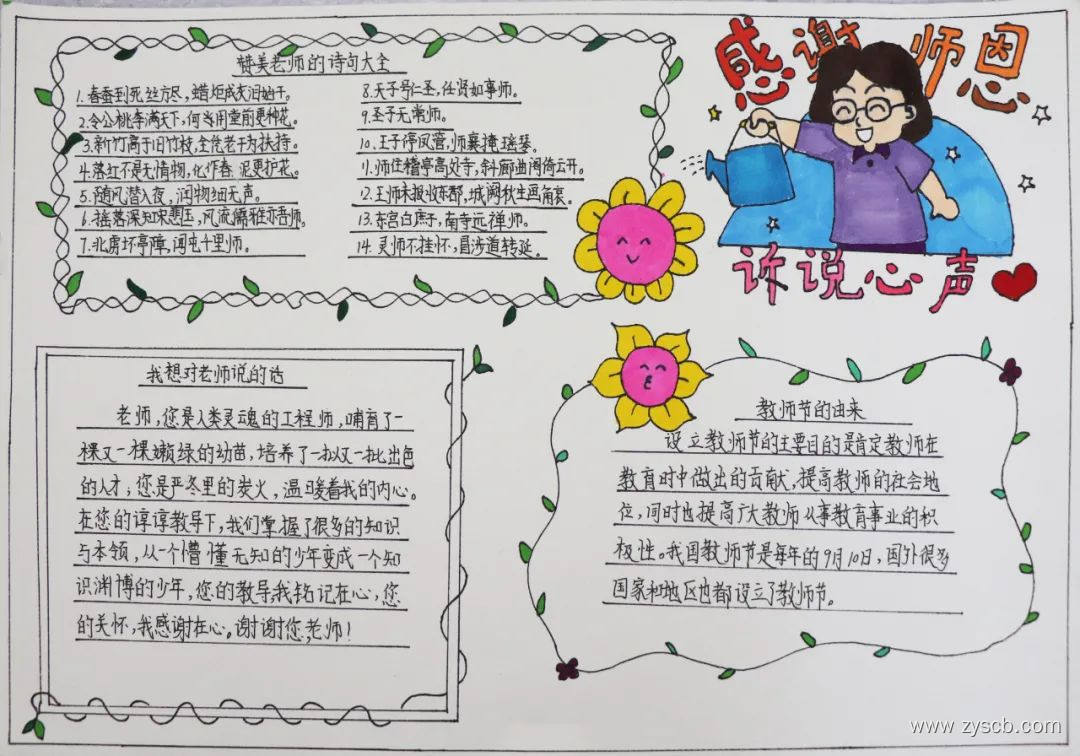 感谢师恩
诉说心声
赞美老师的诗句大全
1.春蚕到死丝方尽，蜡炬成灰泪始干。
2.令公桃李满天下，何用堂前更种花。
3.新竹高于旧竹枝，全凭老干为扶持。
4.落红不是无情物，化作春泥更护花。
5.随风潜入夜，润物细无声。
6.摇落深知宋悲玉，风流儒雅亦吾师。
7.北虏坏亭障，闻屯十里师。
8.天子号仁圣，任贤如事师。
9.圣子无常师。
10.王子停凤管，师襄掩瑶琴。
11.师住稽亭高处寺，斜廊曲阁倚云开。
12.王师未报收东郡，城阙秋生画角哀。
13.东宫白庶子，南寺远禅师。
14.灵师不挂怀，冒涉道转延。
我想对老师说的话
老师，您是人类灵魂的工程师，哺育了一
棵又一棵嫩绿的幼苗，培养了一批又一批出色
的人才；您是严冬里的炭火，温暖着我的内心。
在您的谆谆教导下，我们掌握了很多的知识
与本领，从一个懵懂无知的少年变成一个知
识渊博的少年，您的教导我铭记在心，您
的关怀，我感谢在心。谢谢您，老师！
教师节的由来
设立教师节的主要目的是肯定教师在
教育时中做出的贡献，提高教师的社会地
位，同时也提高广大教师从事教育事业的积
极性。我国教师节是每年的9月10日，国外很多
国家和地区也都设立了教师节。
www.zyscb.com